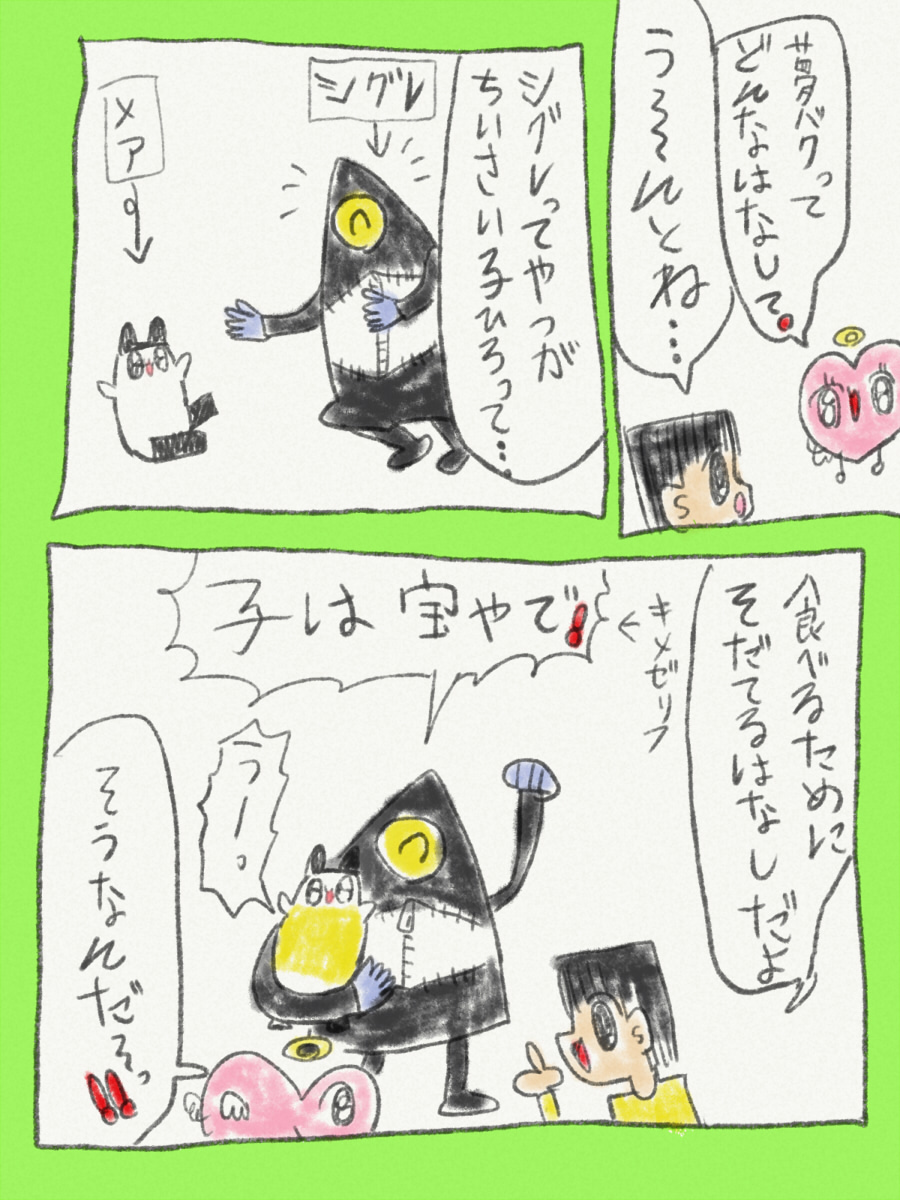 夢バクって
どんなはなして。
う~~んとね…
シグレってやつが
ちいさい子ひろって…
シグレ
メア
食べるために
そだてるはなしだよ
キメゼリフ
子は宝やで!
うー。
そうなんだぁっ!!